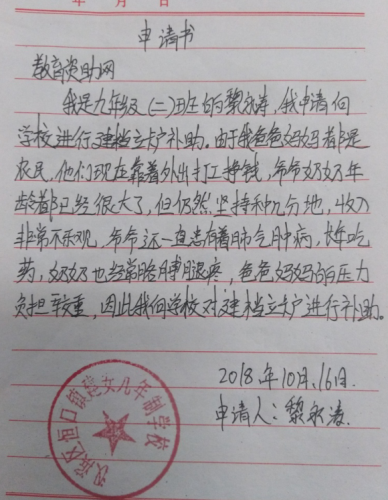 年 月 日
申请书
教育资助网
我是九年级(二)班的黎永涛,我申请向
学校进行建档立卡户补助。由于我爸爸妈妈都是
农民,他们现在靠着外出打工挣钱,爷爷奶奶年
龄都已经很大了,但仍然坚持种几分地,收入
非常不乐观,爷爷还一直患有着肺气肿病,长年吃
药,奶奶也经常胳膊腿疼,爸爸妈妈的压力
负担较重,因此我向学校对建档立卡户进行补助。
2018年10月16日.
申请人:黎永涛.
汉滨区恒口镇 九年制学校